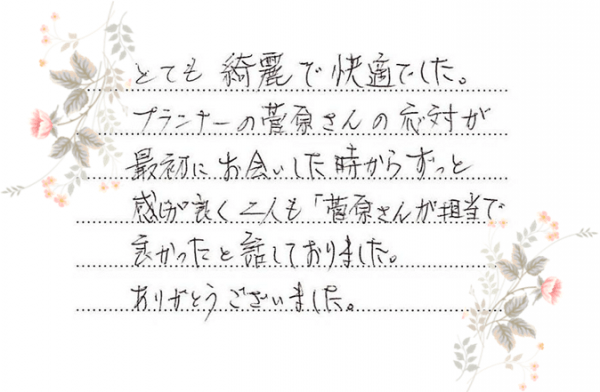 とても 綺麗で快適でした。
プランナーの菅原さんの応対が
最初にお会いした時からずっと
感じが良く二人も「菅原さんが担当で
良かったと話しておりました。
ありがとうございました。